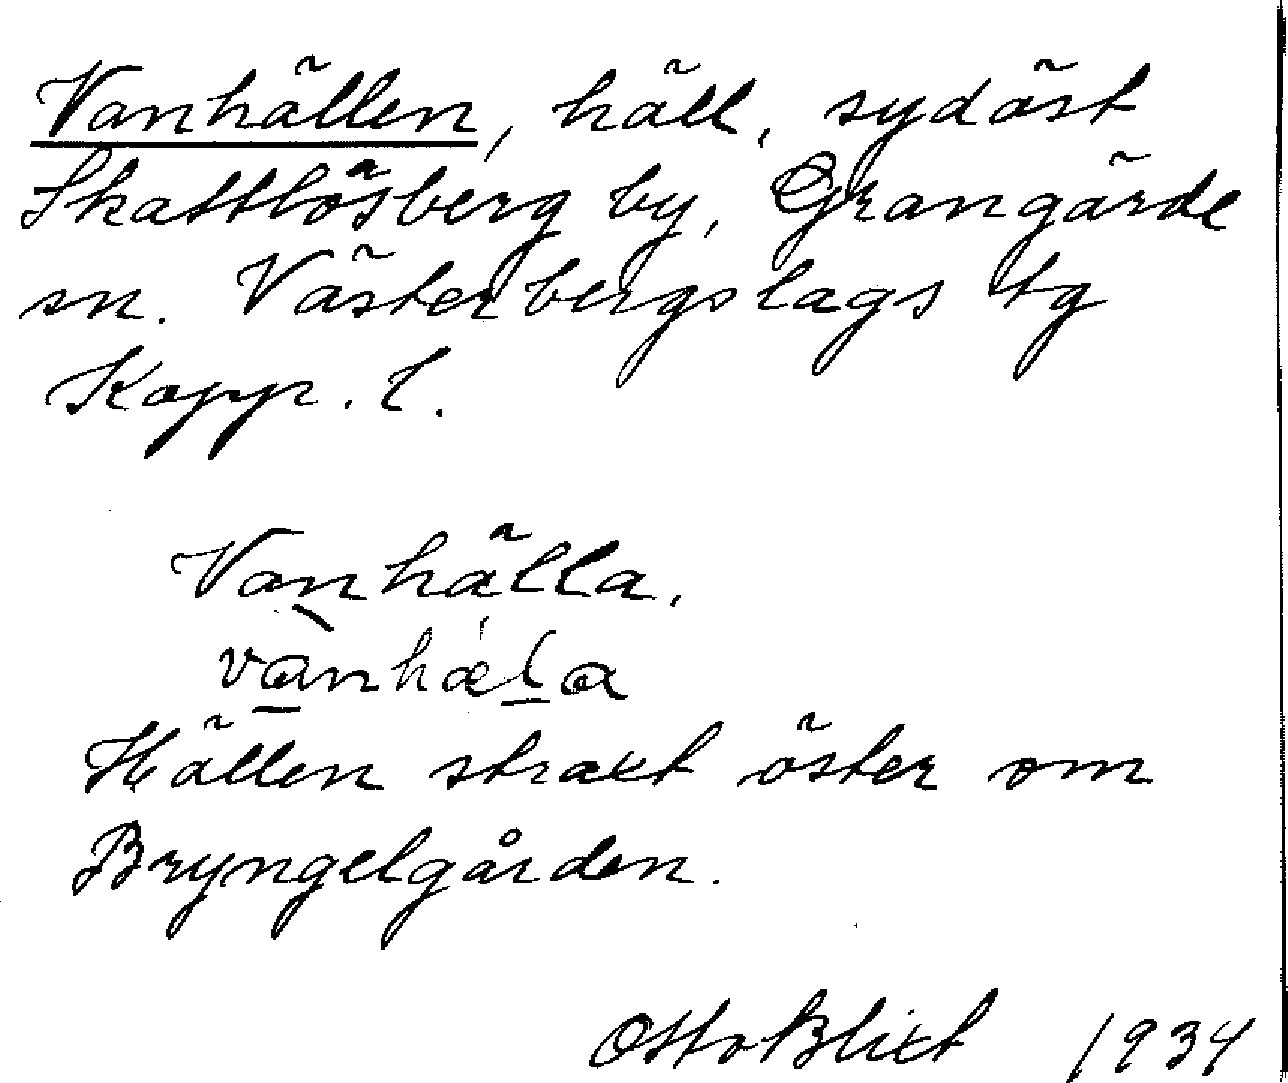 Vanhällen, häll, sydöst
Skattlösberg by, Grangärde
sn. Västerbergslags tg
Kopp. l.
Vanhälla.
vànhæ̀la
Hällen straxt öster om
Bryngelgården.
Otto Blixt 1934